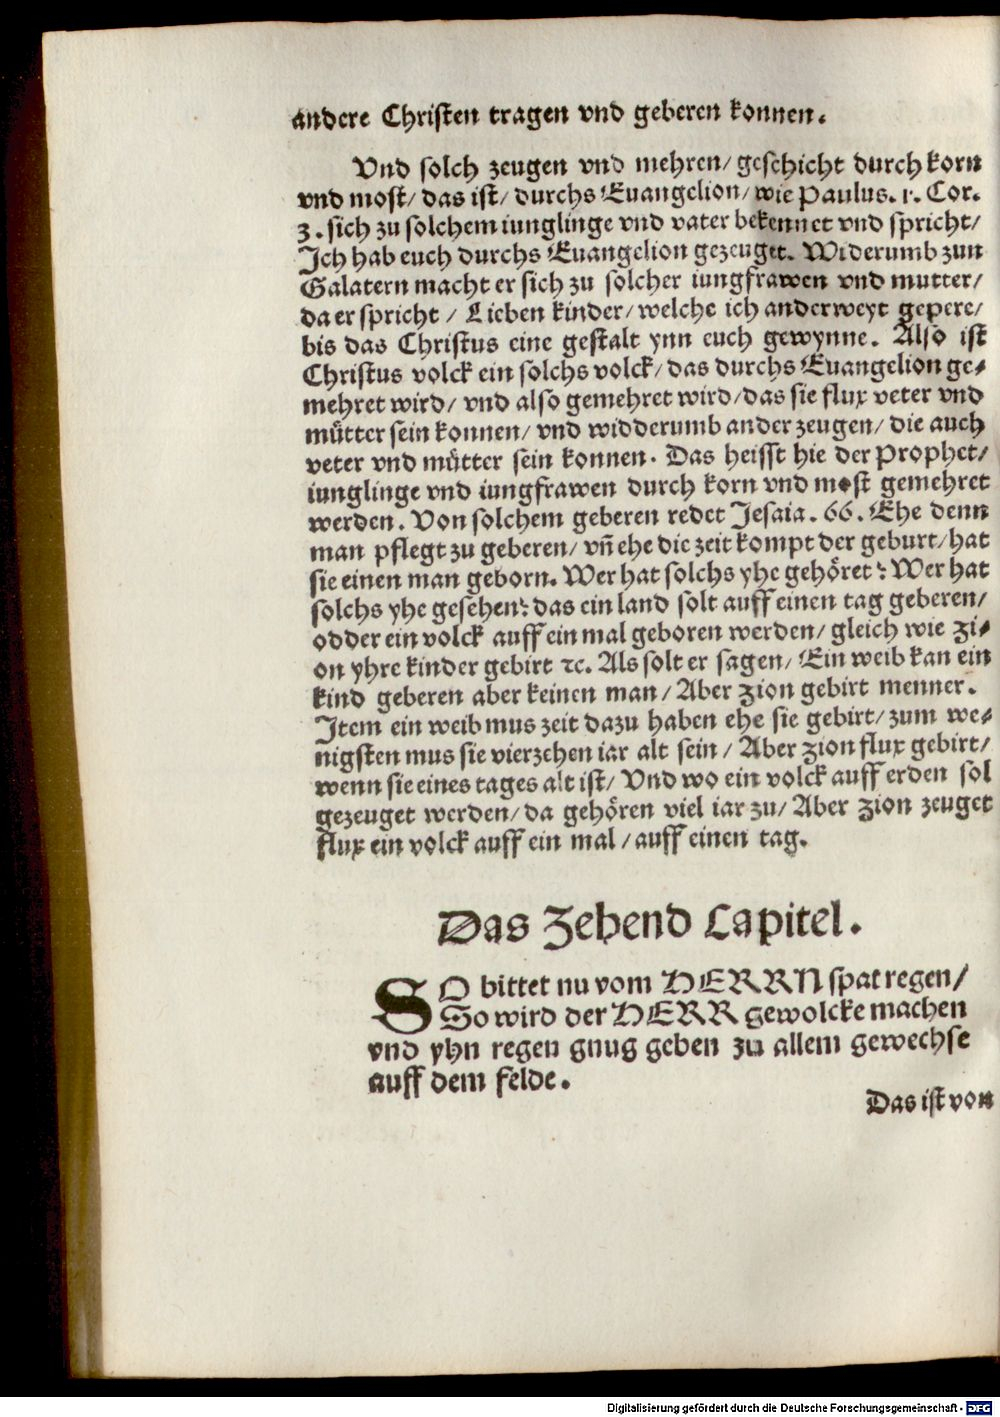 andere Christen tragen vnd geberen konnen.
Vnd solch zeugen vnd mehren/ geschicht durch korn
vnd most/ das ist/ durchs Euangelion/ wie Paulus. 1. Cor.
3. sich zu solchem iunglinge vnd vater bekennet vnd spricht/
Ich hab euch durchs Euangelion gezeuget. Widerumb zun
Galatern macht er sich zu solcher iungfrawen vnd mutter/
da er spricht / Lieben kinder/ welche ich anderweyt gepere/
bis das Christus eine gestalt ynn euch gewynne. Also ist
Christus volck ein solchs volck/ das durchs Euangelion ge-
mehret wird/ vnd also gemehret wird/ das sie flux veter vnd
mütter sein konnen/ vnd widderumb ander zeugen/ die auch
veter vnd mütter sein konnen. Das heisst hie der Prophet/
iunglinge vnd iungfrawen durch korn vnd most gemehret
werden. Von solchem geberen redet Jesaia. 66. Ehe denn
man pflegt zu geberen/ vñ ehe die zeit kompt der geburt/ hat
sie einen man geborn. Wer hat solchs yhe gehöret? Wer hat
solchs yhe gesehen? das ein land solt auff einen tag geberen/
odder ein volck auff ein mal geboren werden/ gleich wie Zi-
on yhre kinder gebirt ꝛc. Als solt er sagen/ Ein weib kan ein
kind geberen aber keinen man/ Aber Zion gebirt menner.
Item ein weib mus zeit dazu haben ehe sie gebirt/ zum we-
nigsten mus sie vierzehen iar alt sein/ Aber Zion flux gebirt/
wenn sie eines tages alt ist/ Vnd wo ein volck auff erden sol
gezeuget werden/ da gehören viel iar zu/ Aber Zion zeuget
flux ein volck auff ein mal/ auff einen tag.
Das Zehend Capitel.
SO bittet nu vom HERRN spat regen/
So wird der HERR gewolcke machen
vnd yhn regen gnug geben zu allem gewechse
auff dem felde.
Das ist von
Digitalisierung gefördert durch die Deutsche Forschungsgemeinschaft - DFG